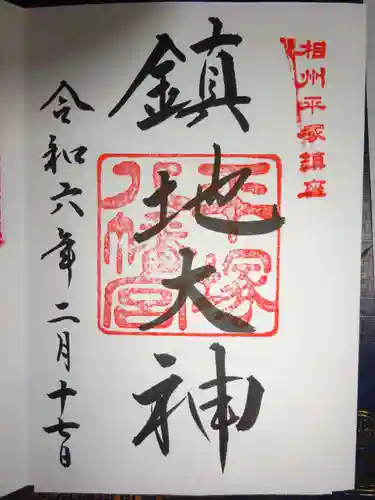 相州平塚鎮座
鎮地大神
平塚
八幡宮
令和六年二月十七日